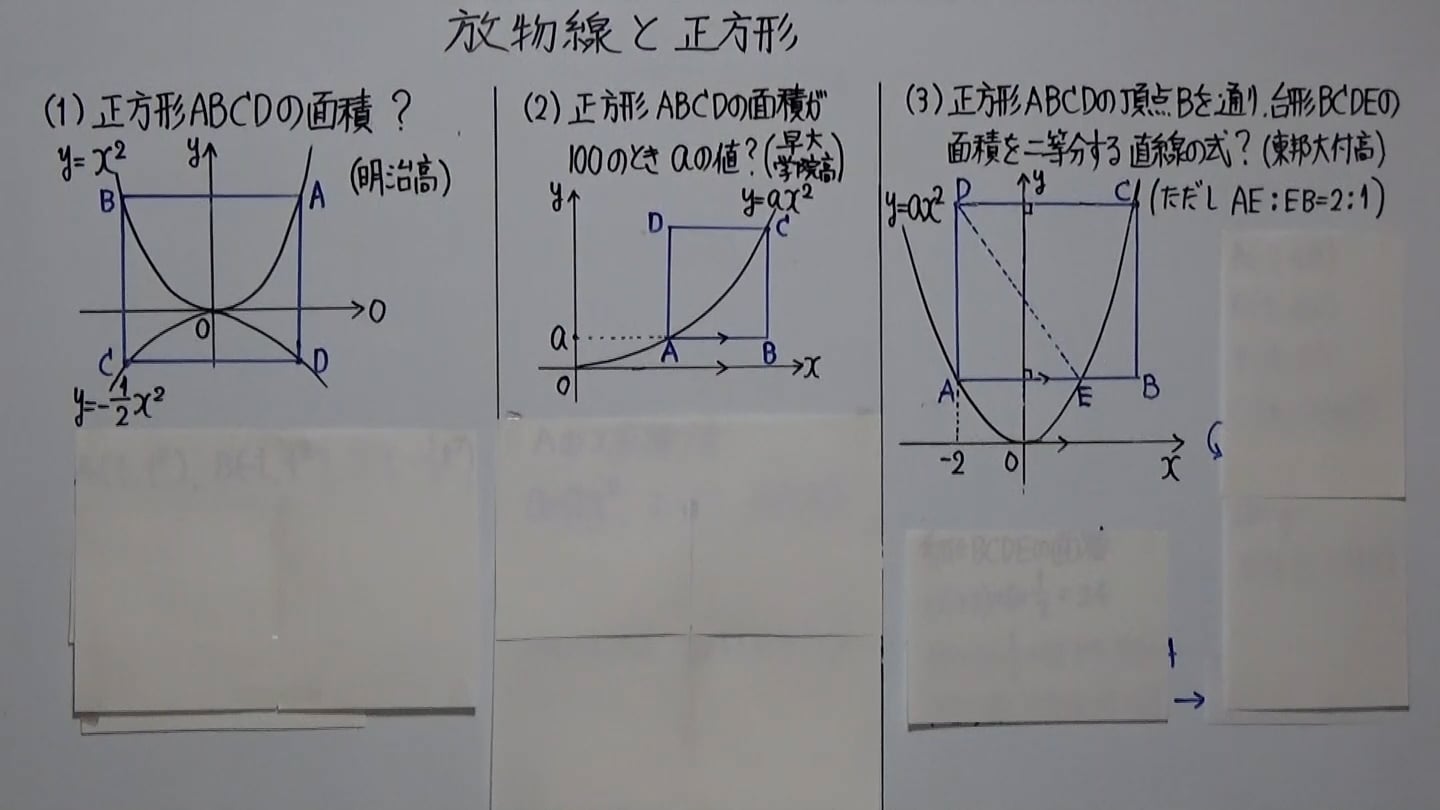 放物線と正方形
(1) 正方形ABCDの面積？
(明治高)
y=x²
y
B
A
O
O
C
D
y=-1/2x²
(2) 正方形ABCDの面積が
100のとき aの値？(早大学院高)
y
y=ax²
D
C
a
A
B
O
x
(3) 正方形ABCDの頂点Bを通り、台形BCDEの
面積を二等分する直線の式？(東邦大付高)
(ただし AE:EB=2:1)
y=ax²
D
y
C
A
E
B
-2
O
x